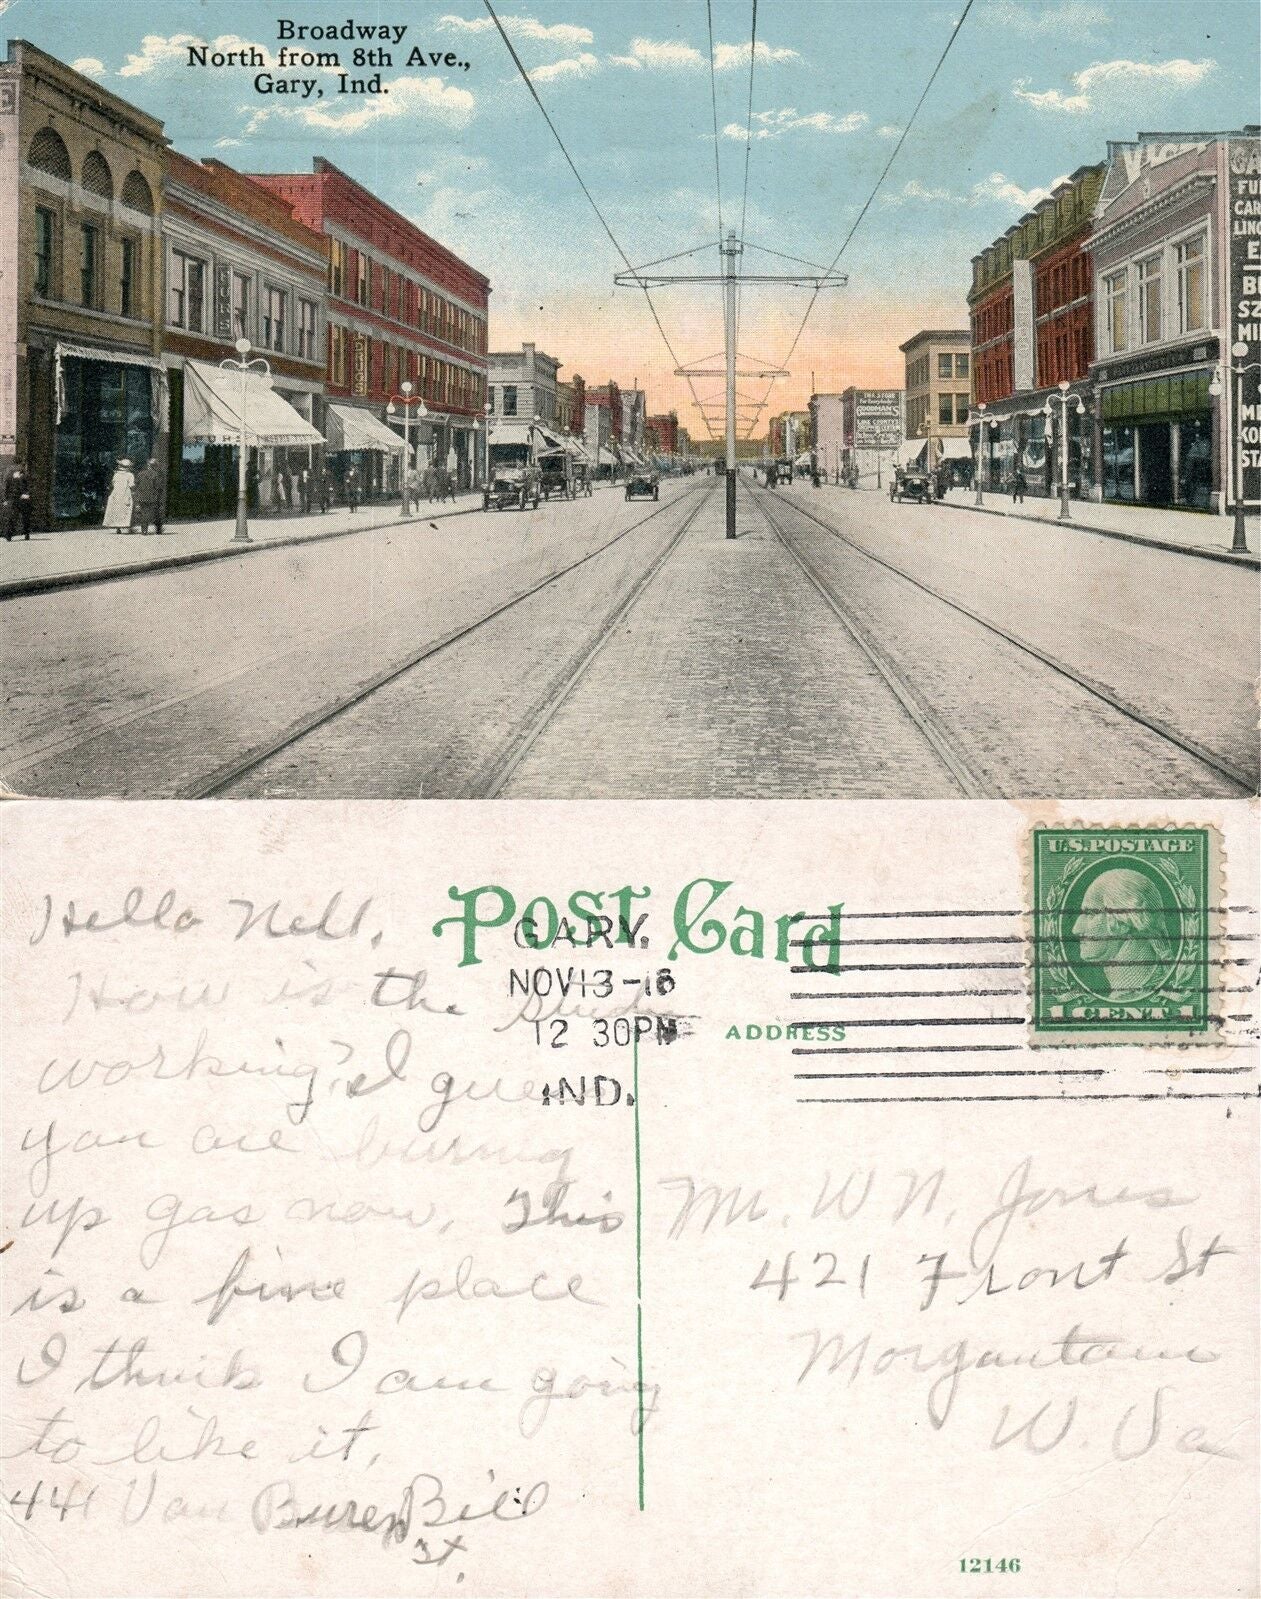 Broadway
North from 8th Ave.,
Gary, Ind.
FURS
FURS
THE STORE
For Everybody
GOODMAN'S
LAKE COUNTY'S
Post Card
GARY.
NOV 13-16
12 30PM
IND.
ADDRESS
U.S. POSTAGE
1 CENT 1
Hello Nell.
How is the
working? I guess
you are burning
up gas now. This
is a fine place
I think I am going
to like it.
Bill
441 Van Buren
St.
Mr. W N. Jones
421 Front St
Morgantown
W. Va
12146